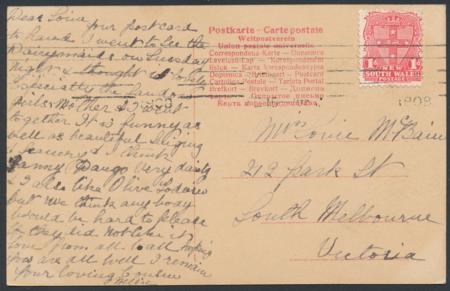 Dear Lovie your postcard
to hand I went to see the
Dairymaids on Tuesday
night & thought it lovely
especially the Sandow
girls Mother & I went
together It is funny as
well as beautiful singing
& scenery I think
Fanny Dango very dainty
I also like Olive Godwin
but we think anybody
would be hard to please
if they did not like it
love from all to all hoping
you are all well I remain
Your loving Cousin
Postkarte - Carte postale
Weltpostverein
Union postale universelle
Correspondenz-Karte - Dopisnice
Levelező-Lap
Dopisnica - Brefkort
Cartolina Postale - Tarjeta Postal
Brefkort - Brevkort
Открытое письмо
1d 1d
NEW
SOUTH WALES
POSTAGE
1908
Mrs Lovie McBain
212 Park St
South Melbourne
Victoria